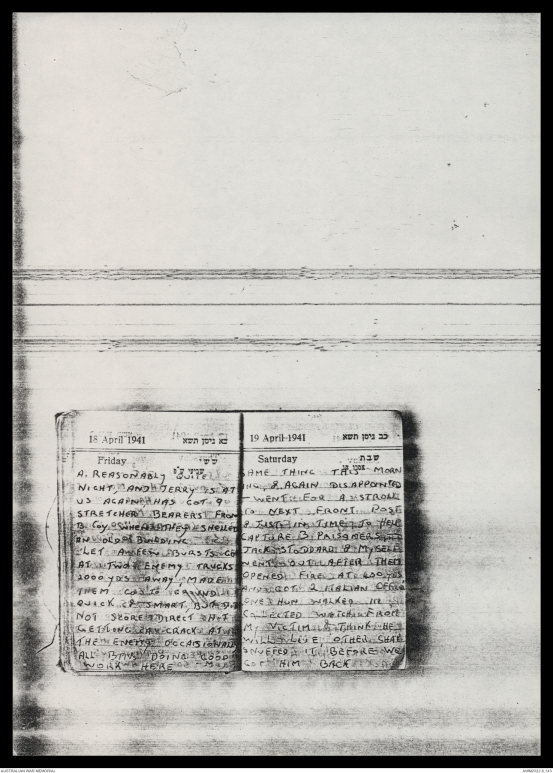 18 April 1941 כא ניסן תשא
Friday ששי
שביעי ש״פ
A. REASONABLY QUITE
NIGHT, AND JERRY IS AT
US AGAIN HAS GOT 9
STRETCHER BEARERS FROM
B. Coy. WHERE THEY SHELLED
AN OLD BUILDING
LET A FEW BURSTS GO
AT TWO ENEMY TRUCKS
2000 YDS AWAY MADE
THEM GO TO GROUND
QUICK & SMART, BUT DID
NOT SCORE DIRECT HIT
GETTING A CRACK AT
THE ENEMY OCCASIONALL
ALL BTYS DOING GOOD
WORK HERE
19 April 1941 כב ניסן תשא
Saturday שבת
SAME THING THIS MORN
ING, & AGAIN DISAPPOINTED
- WENT FOR A STROLL
TO NEXT FRONT POST
& JUST IN TIME TO HELP
CAPTURE 3 PRISONERS
JACK STODDARD & MYSELF
WENT OUT AFTER THEM
OPENED FIRE AT 600 YDS
AND GOT 2 ITALIAN OFFIC
ONE HUN WALKED IN
COLLECTED WATCH FROM
MY VICTIM & THINK HE
WILL LIVE OTHER CHAP
SNUFFED IT BEFORE WE
GOT HIM BACK
AUSTRALIAN WAR MEMORIAL